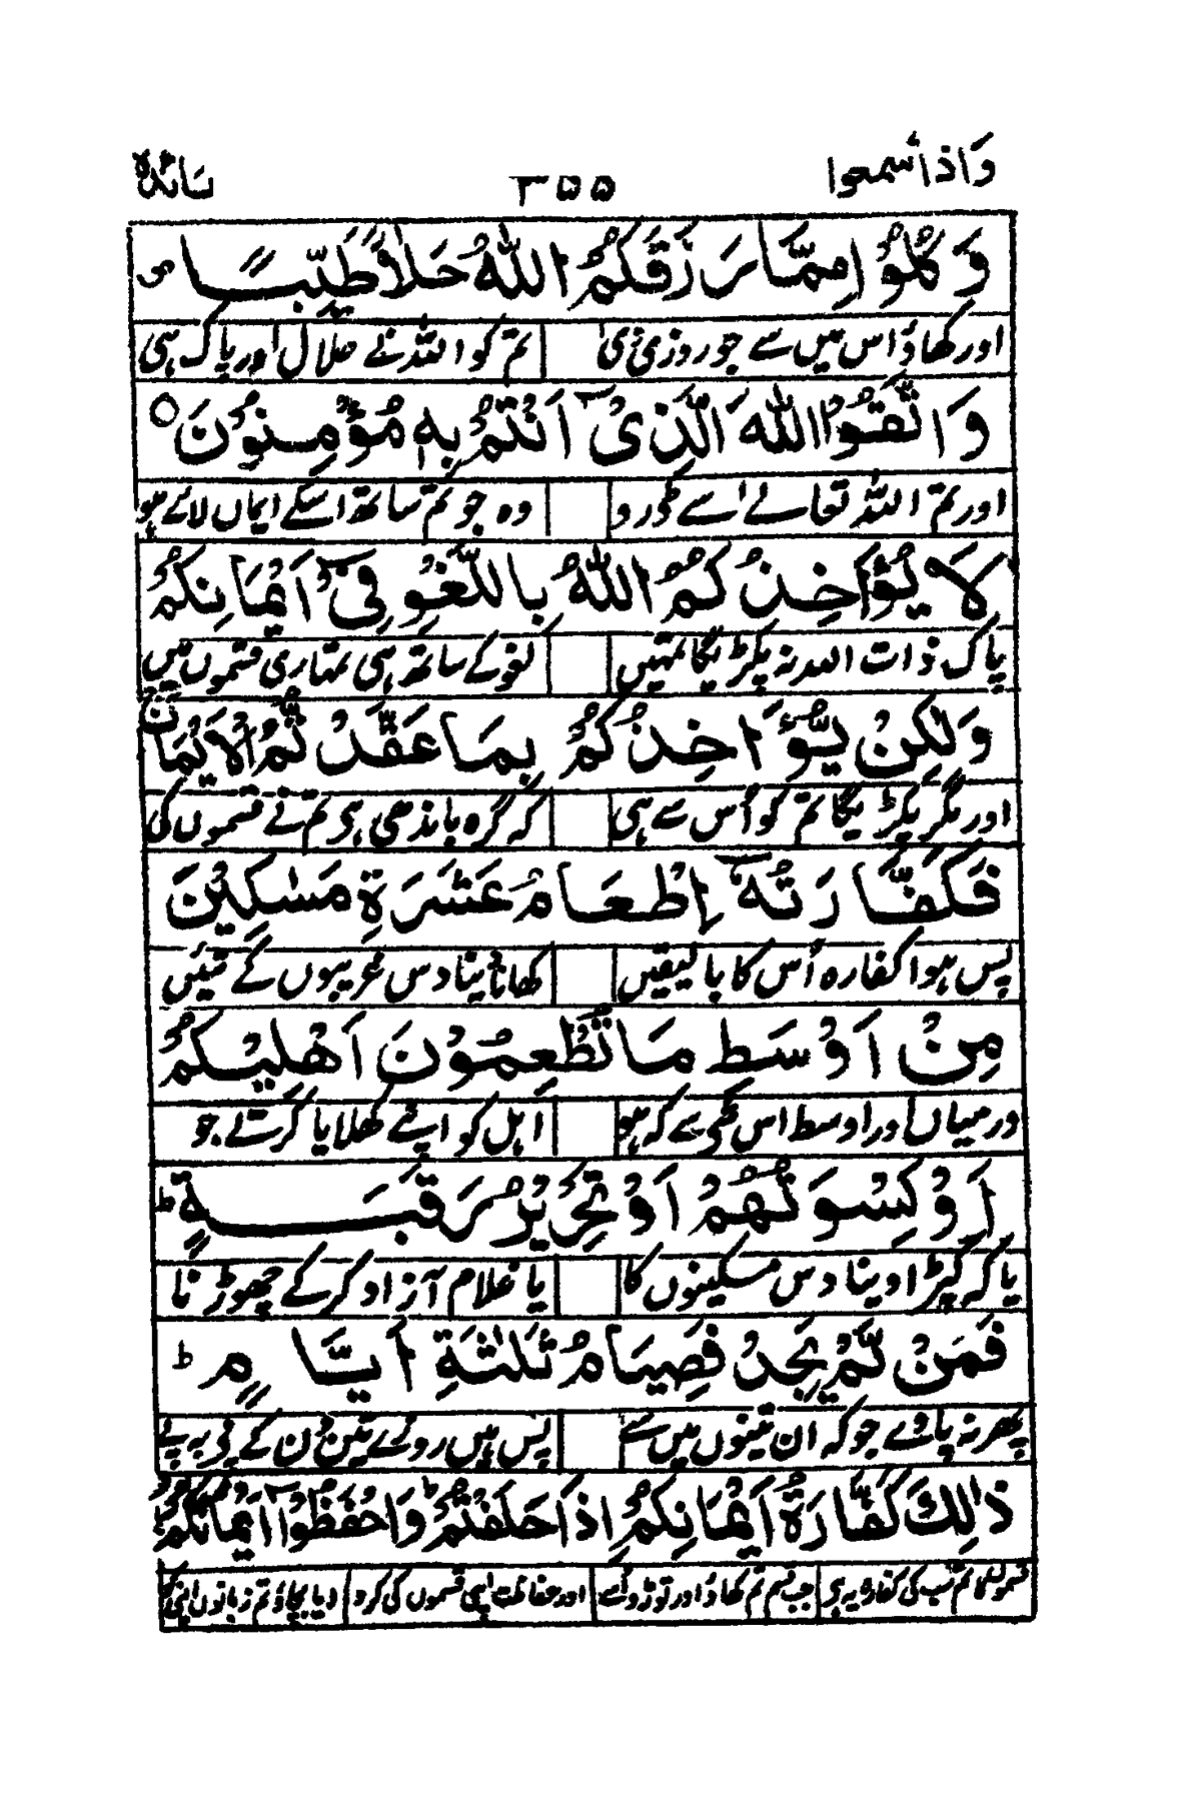 واذا سمعوا ۳۵۵ مائدة
وَكُلُوْا مِمَّا رَزَقَكُمُ اللّٰهُ حَلٰلًا طَيِّبًا ص
اور کھاؤ اس میں سے جو روزی دی تم کو اللہ نے حلال اور پاک ہی
وَاتَّقُوا اللّٰهَ الَّذِىْٓ اَنْتُمْ بِهٖ مُؤْمِنُوْنَ ○
اور تم اللہ تعالے سے ڈرو وہ جو تم ساتھ اسکے ایماں لائے ہو
لَا يُؤَاخِذُكُمُ اللّٰهُ بِاللَّغْوِ فِىْٓ اَيْمَانِكُمْ
پاک ذات اللہ نہ پکڑیگا تمہیں لغو کے ساتھ ہی تمہاری قسموں میں
وَلٰكِنْ يُّؤَاخِذُكُمْ بِمَا عَقَّدْتُّمُ الْاَيْمَانَ
اور مگر پکڑیگا تم کو اُس سے ہی کہ گرہ باندھی ہی تم نے قسموں کی
فَكَفَّارَتُهٗٓ اِطْعَامُ عَشَرَةِ مَسٰكِيْنَ
پس ہوا کفارہ اُس کا بالیقیں کھانا دینا دس غریبوں کے تئیں
مِنْ اَوْسَطِ مَا تُطْعِمُوْنَ اَهْلِيْكُمْ
درمیاں اور اوسط اس سے کہ ہو اہل کو اپنے کھلایا کرتے جو
اَوْ كِسْوَتُهُمْ اَوْ تَحْرِيْرُ رَقَبَةٍ ط
یا کہ کپڑا دینا دس مسکینوں کا یا غلام آزاد کر کے چھوڑنا
فَمَنْ لَّمْ يَجِدْ فَصِيَامُ ثَلٰثَةِ اَيَّامٍ ط
پھر نہ پاوے جو کہ ان تینوں میں سے پس ہیں روزے تین دن کے پے بہ پے
ذٰلِكَ كَفَّارَةُ اَيْمَانِكُمْ اِذَا حَلَفْتُمْ ط وَاحْفَظُوْٓا اَيْمَانَكُمْ ط
کی کفارہ یہ ہی جب قسم تم کھاؤ اور توڑو اُسے اور حفاظت اپنی قسموں کی کرو یا بچاؤ تم زبانوں اپنی کو